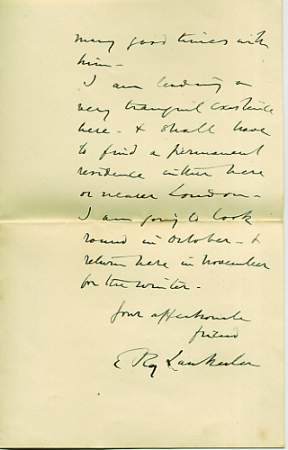 many good times with
him –
I am leading a
very tranquil existence
here – & shall have
to find a permanent
residence either here
or nearer London –
I am going to look
round in October – &
return here in November
for the winter –
your affectionate
friend
E Ray Lankester